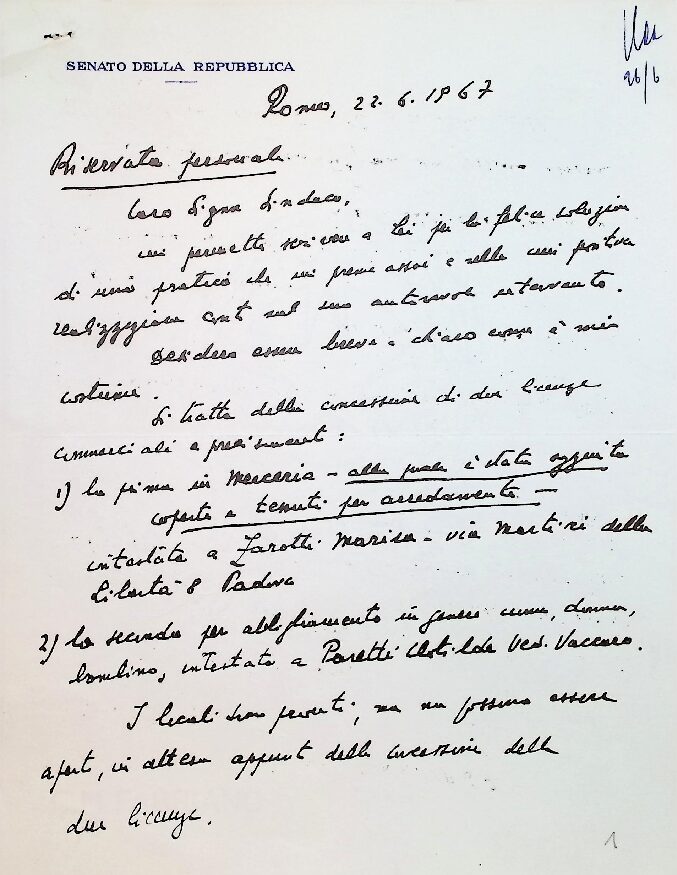 SENATO DELLA REPUBBLICA
26/6
Roma, 22.6.1967
Riservata personale
Caro Signor Sindaco,
mi permetto scrivere a Lei per la felice soluzione
di una pratica che mi preme assai e nella cui positiva
realizzazione conto sul suo autorevole intervento.
Desidero essere breve e chiaro come è mio
costume.
Si tratta della concessione di due licenze
commerciali e precisamente:
1) la prima in Merceria - alla quale è stata aggiunta
coperte e tessuti per arredamento -
intestata a Zarotti Marisa - via Martiri della
Libertà 8 Padova
2) la seconda per abbigliamento in genere uomo, donna,
bambino, intestata a Paretti Clotilde Ved. Vaccaro.
I locali sono pronti, ma non possono essere
aperti, in attesa appunto della concessione delle
due licenze.
1